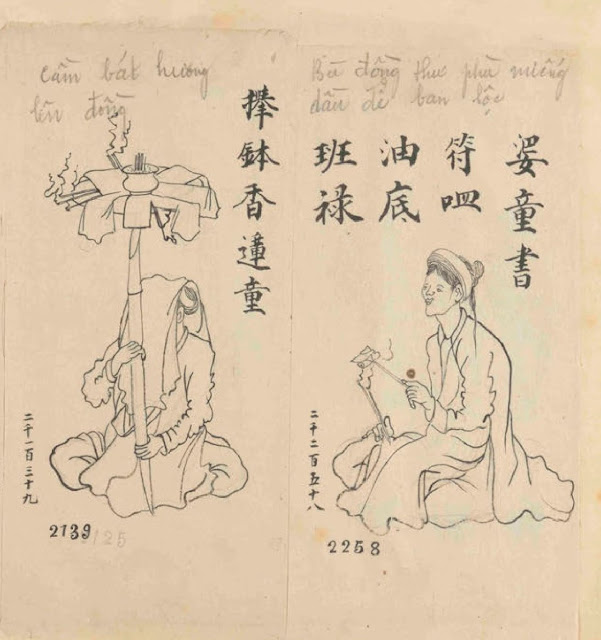 Cầm bát hương
lên đồng
捧鉢香𨖲童
二千一百三十九
2139
Bà đồng thư phù miếng
dầu để ban lộc
婆童書
符𠰘
油底
班禄
二千二百五十八
2258